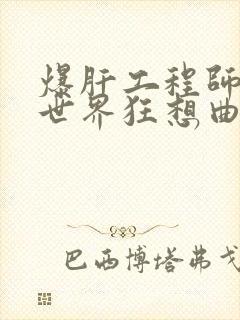 爆肝工程師
世界狂想曲
巴西博塔弗戈